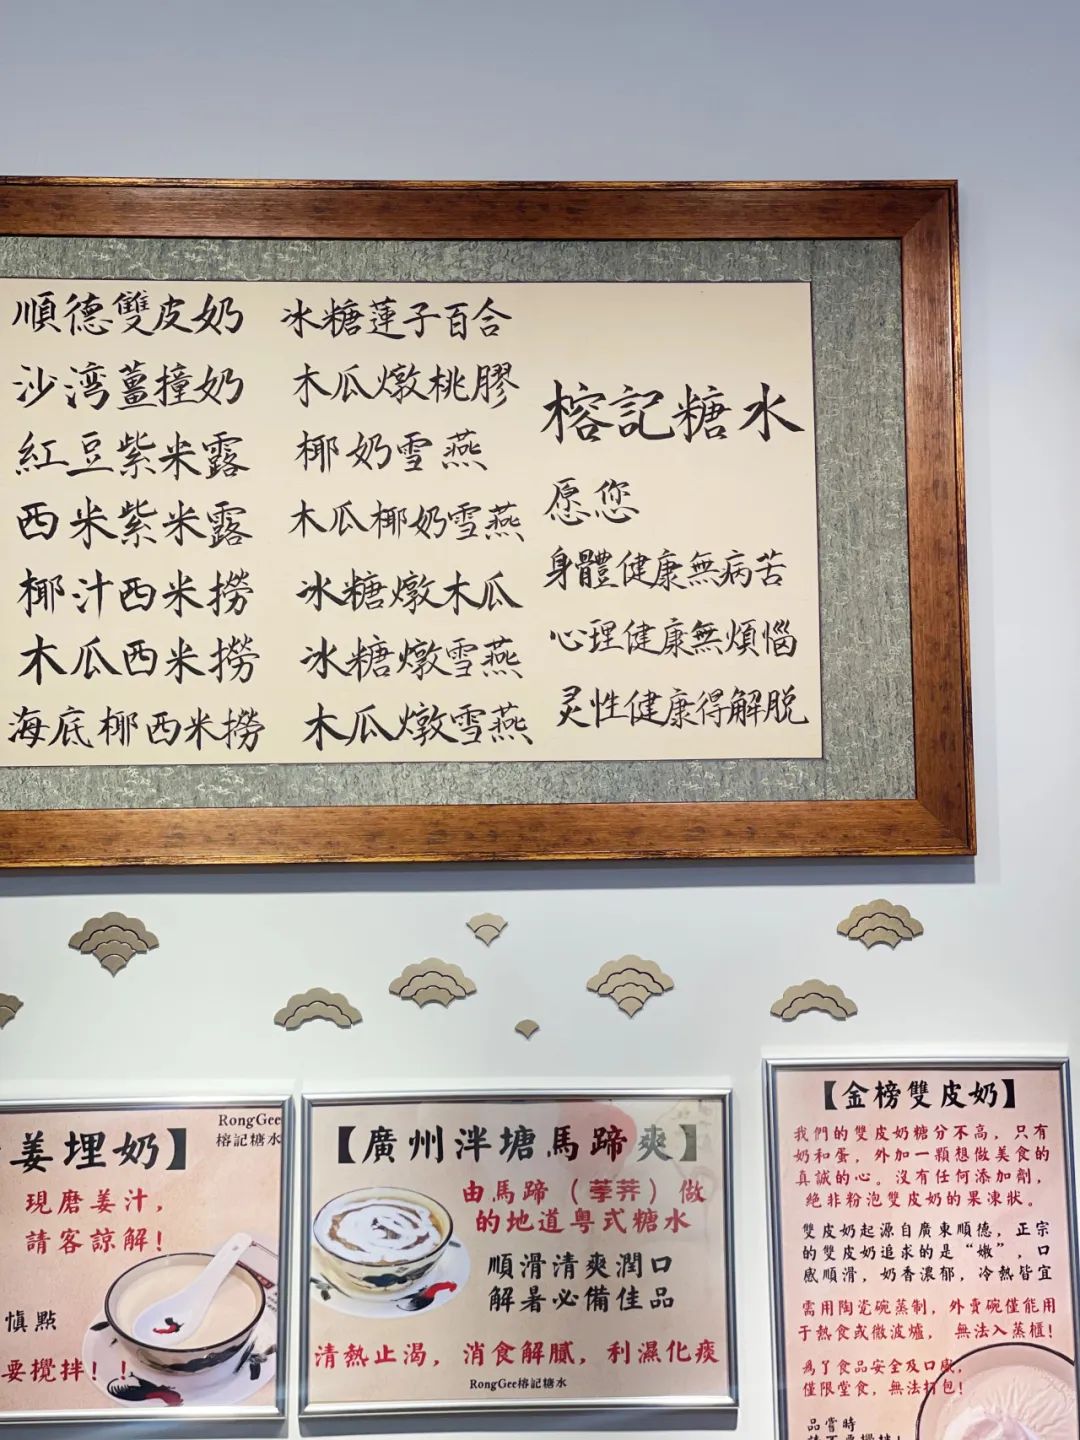 順德雙皮奶
沙湾薑撞奶
紅豆紫米露
西米紫米露
椰汁西米撈
木瓜西米撈
海底椰西米撈
冰糖蓮子百合
木瓜燉桃膠
椰奶雪燕
木瓜椰奶雪燕
冰糖燉木瓜
冰糖燉雪燕
木瓜燉雪燕
榕記糖水
愿您
身體健康無病苦
心理健康無煩惱
灵性健康得解脱
RongGee
榕記糖水
姜埋奶】
現磨姜汁，
請客諒解！
慎點
要攪拌！！
【廣州泮塘馬蹄爽】
由馬蹄（荸荠）做
的地道粤式糖水
順滑清爽潤口
解暑必備佳品
清熱止渴，消食解膩，利濕化痰
RongGee榕記糖水
【金榜雙皮奶】
我們的雙皮奶糖分不高，只有
奶和蛋，外加一顆想做美食的
真誠的心。沒有任何添加劑，
絕非粉泡雙皮奶的果凍狀。
雙皮奶起源自廣東順德，正宗
的雙皮奶追求的是“嫩”，口
感順滑，奶香濃郁，冷熱皆宜
需用陶瓷碗蒸制，外賣碗僅能用
于熱食或微波爐，無法入蒸櫃！
爲了食品安全及口感，
僅限堂食，無法打包！
品嘗時